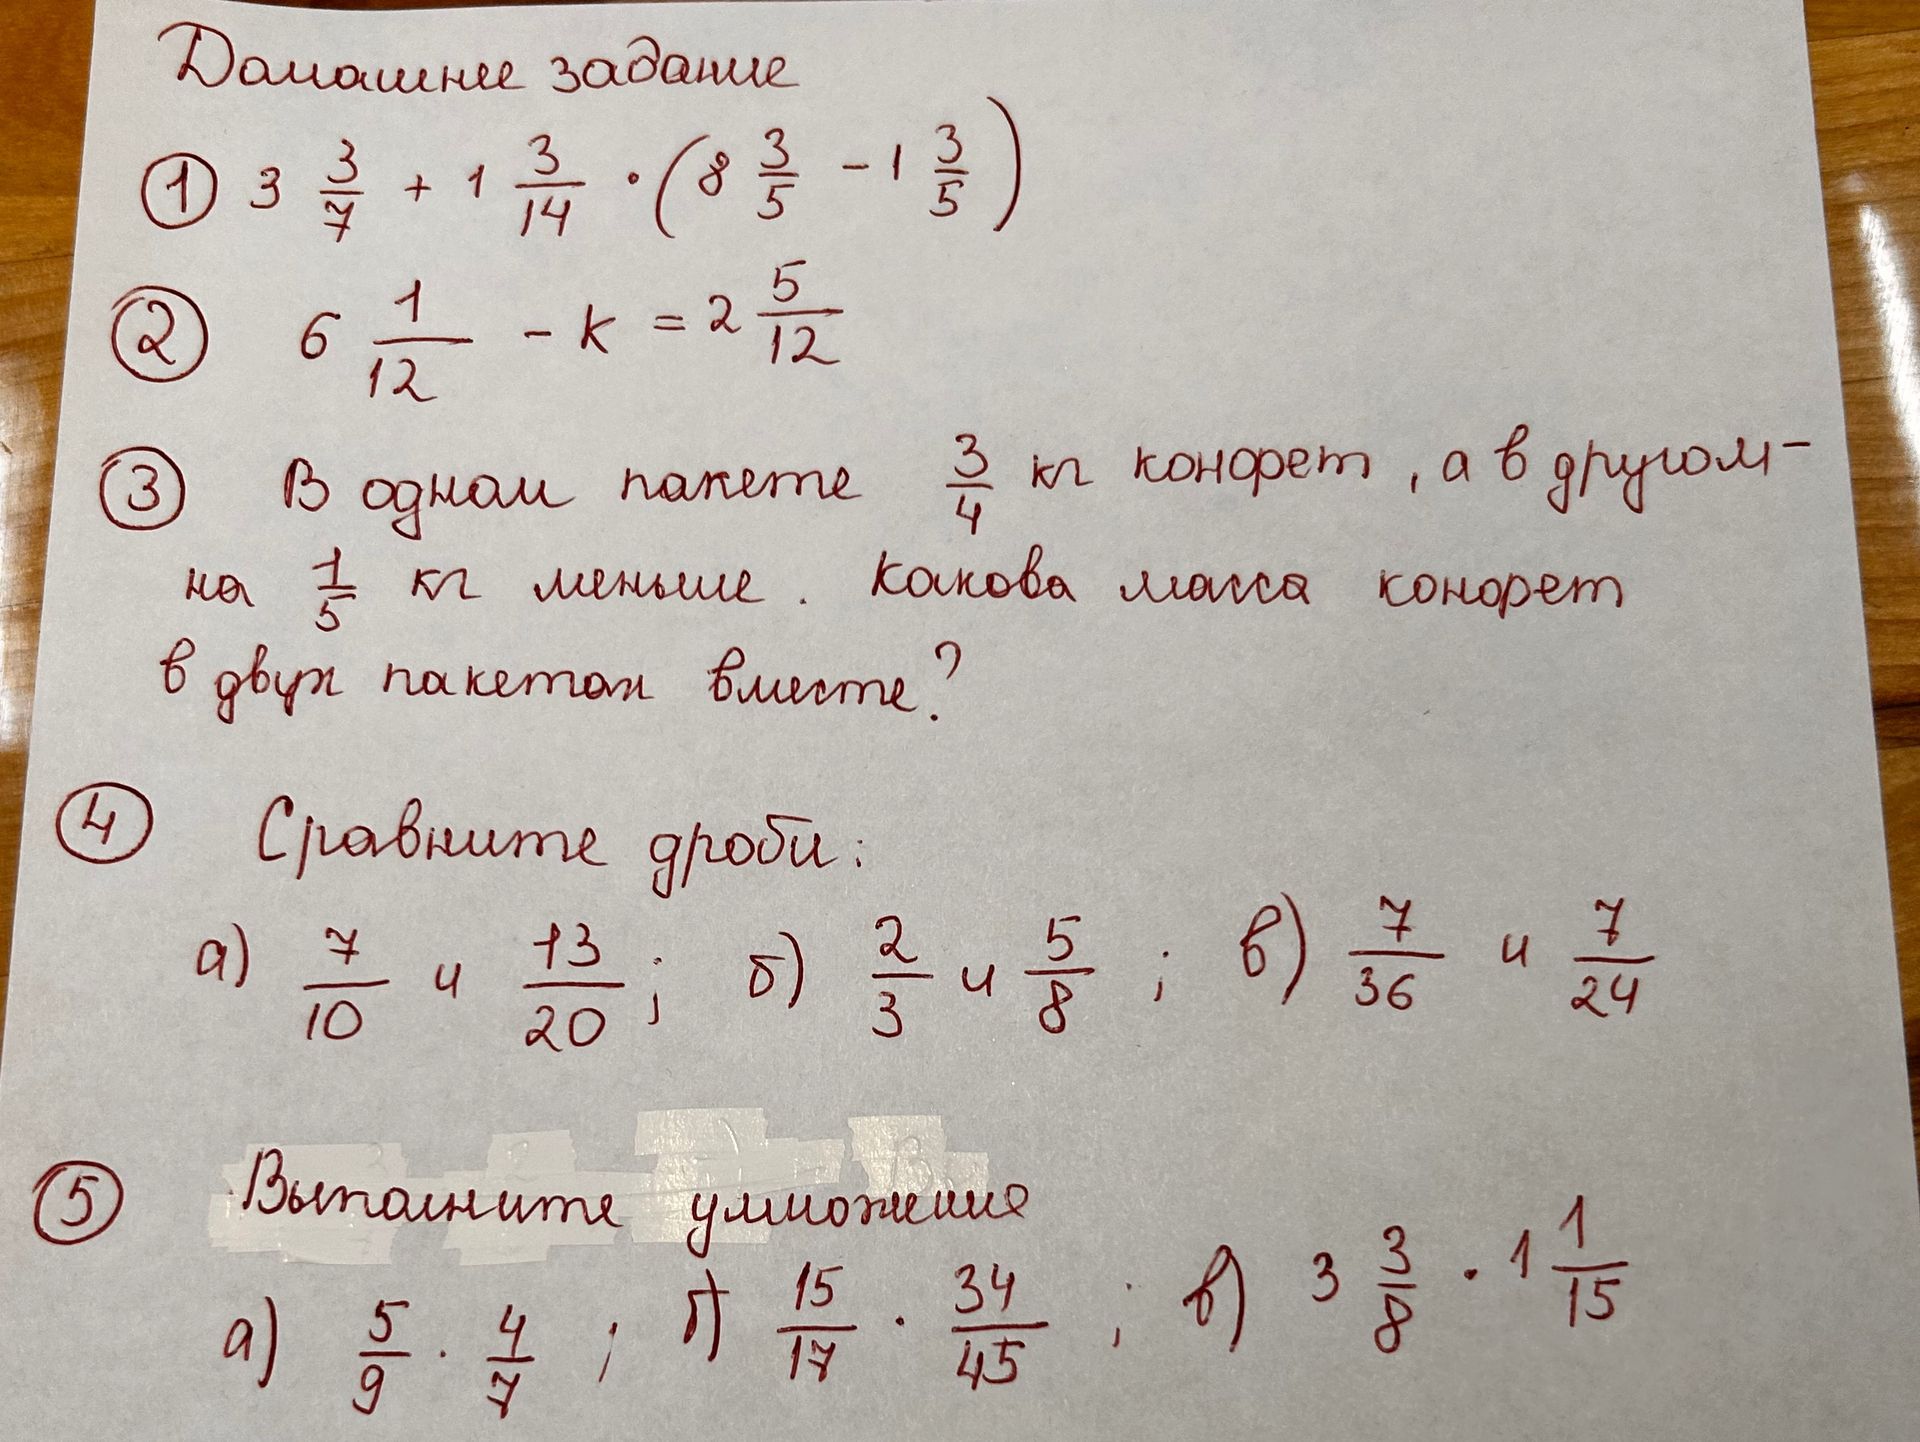 Домашнее задание
① 3 3/7 + 1 3/14 · (8 3/5 - 1 3/5)
② 6 1/12 - k = 2 5/12
③ В одном пакете 3/4 кг конфет, а в другом -
на 1/5 кг меньше. Какова масса конфет
в двух пакетах вместе?
④ Сравните дроби:
а) 7/10 и 13/20; б) 2/3 и 5/8; в) 7/36 и 7/24
⑤ Выполните умножение
а) 5/9 · 4/7; б) 15/17 · 34/45; в) 3 3/8 · 1 1/15